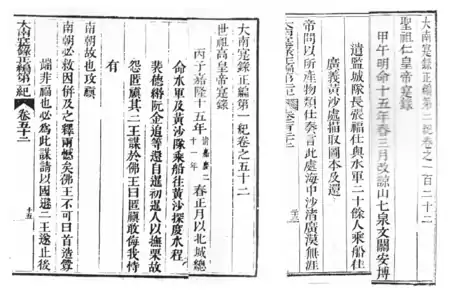 大南寔錄正編第二紀卷之一百二十二
聖祖仁皇帝寔錄
甲午明命十五年春三月改諒山七泉文關安博
遣監城隊長張福仕與水軍二十餘人乘船往
廣義黃沙處描取圖本及還
帝問以所產物類仕奏言此處海中沙渚廣漠無涯
大南寔錄正編第一紀卷之五十二
世祖高皇帝寔錄
丙子嘉隆十五年清嘉慶二十一年春正月以北城總
命水軍及黃沙隊乘船往黃沙探度水程
裴德緡阮金追等還自暹初暹人以撫栗故
怨匿禛其二王謀於佛王曰匿禛敢侮我恃
有
南朝故也攻禛
南朝必救因併及之釋兩憾矣佛王不可曰首造釁
端非福也必為此謀請以國遜二王遂止後
大南寔錄正編第一紀 卷五十二 十五